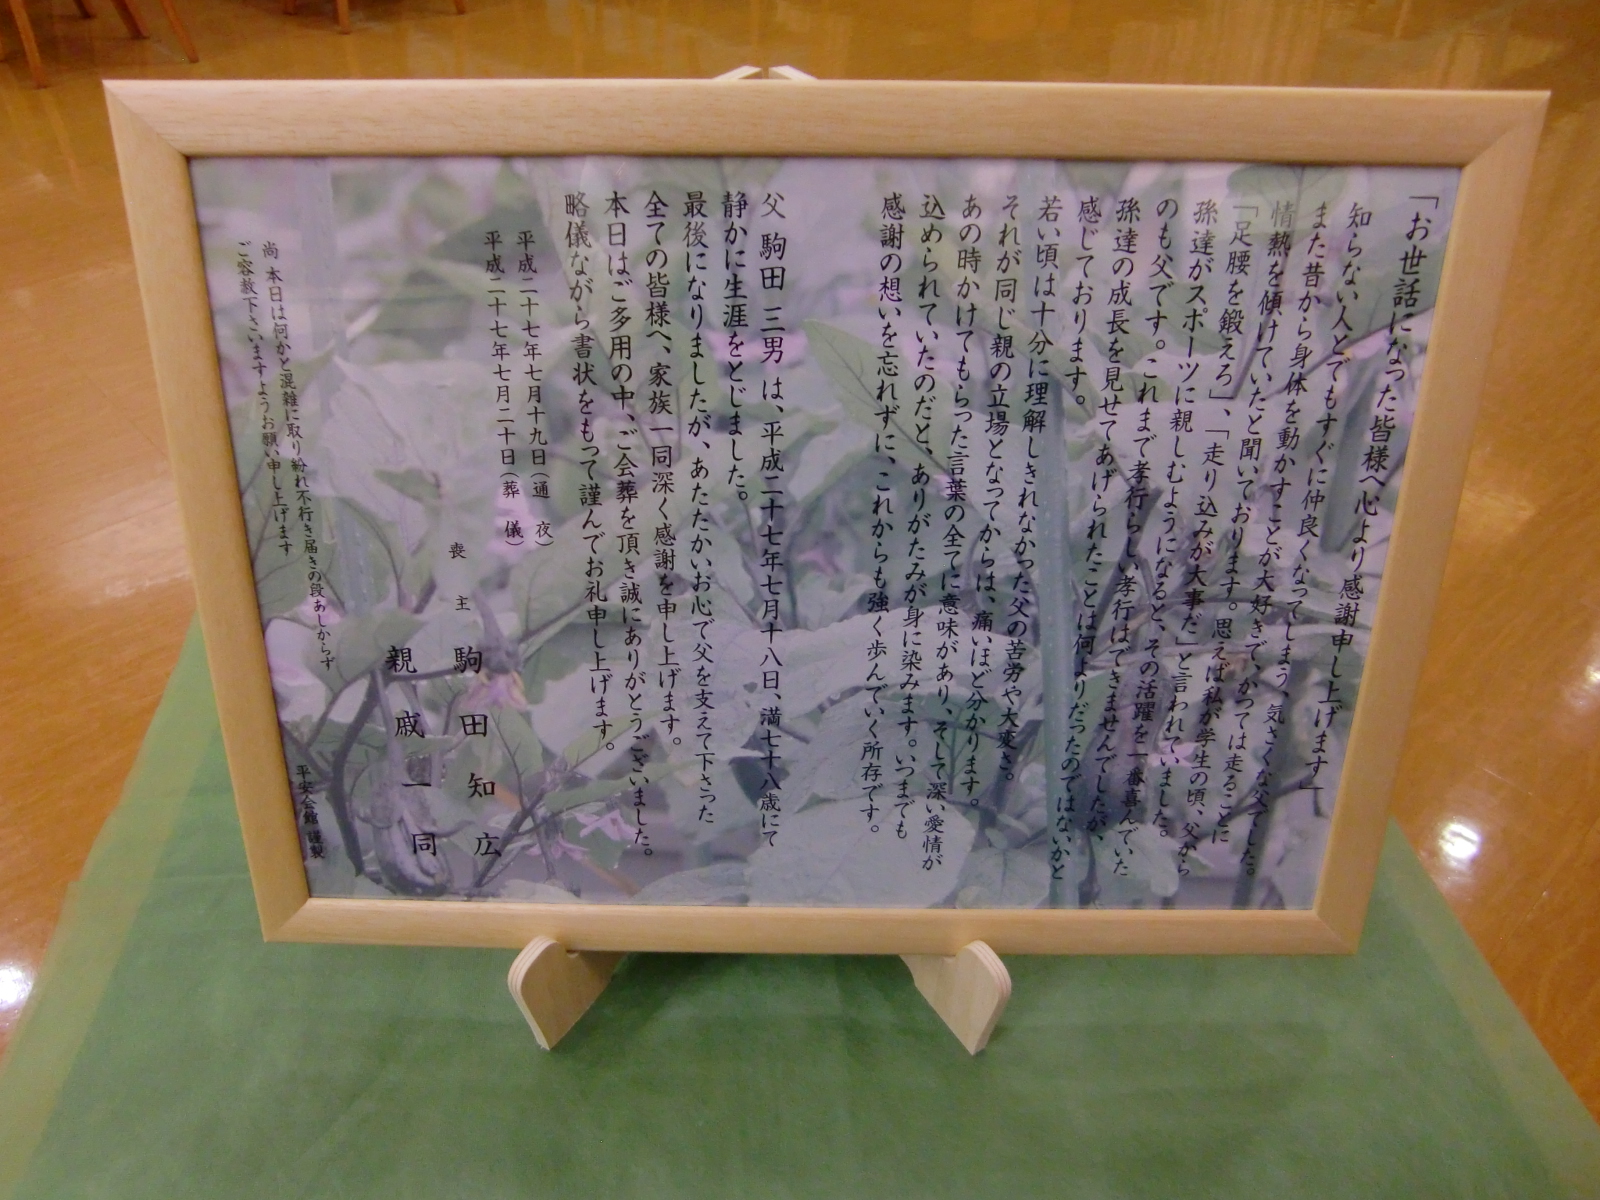 「お世話になった皆様へ心より感謝申し上げます」
知らない人とでもすぐに仲良くなってしまう、気さくな父でした。
また昔から身体を動かすことが大好きで、かつては走ることに
情熱を傾けていたと聞いております。思えば私が学生の頃、父から
「足腰を鍛えろ」、「走り込みが大事だ」と言われていました。
孫達がスポーツに親しむようになると、その活躍を一番喜んでいた
のも父です。これまで孝行らしい孝行はできませんでしたが、
孫達の成長を見せてあげられたことは何よりだったのではないかと
感じております。
若い頃は十分に理解しきれなかった父の苦労や大変さ。
それが同じ親の立場となってからは、痛いほど分かります。
あの時かけてもらった言葉の全てに意味があり、そして深い愛情が
込められていたのだと、ありがたみが身に染みます。いつまでも
感謝の想いを忘れずに、これからも強く歩んでいく所存です。
父 駒田 三男 は、平成二十七年七月十八日、満七十八歳にて
静かに生涯をとじました。
最後になりましたが、あたたかいお心で父を支えて下さった
全ての皆様へ、家族一同深く感謝を申し上げます。
本日はご多用の中、ご会葬を頂き誠にありがとうございました。
略儀ながら書状をもって謹んでお礼申し上げます。
平成二十七年七月十九日（通 夜）
平成二十七年七月二十日（葬 儀）
喪 主 駒 田 知 広
親 戚 一 同
尚 本日は何かと混雑に取り紛れ不行き届きの段あしからず
ご容赦下さいますようお願い申し上げます
平安会館 謹製